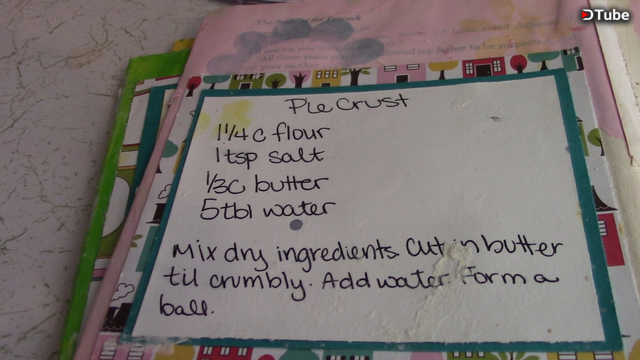 DTube
Pie Crust
1 1/4 c flour
1 tsp salt
1/3 c butter
5 tbl water
Mix dry ingredients. Cut in butter
til crumbly. Add water. Form a
ball.